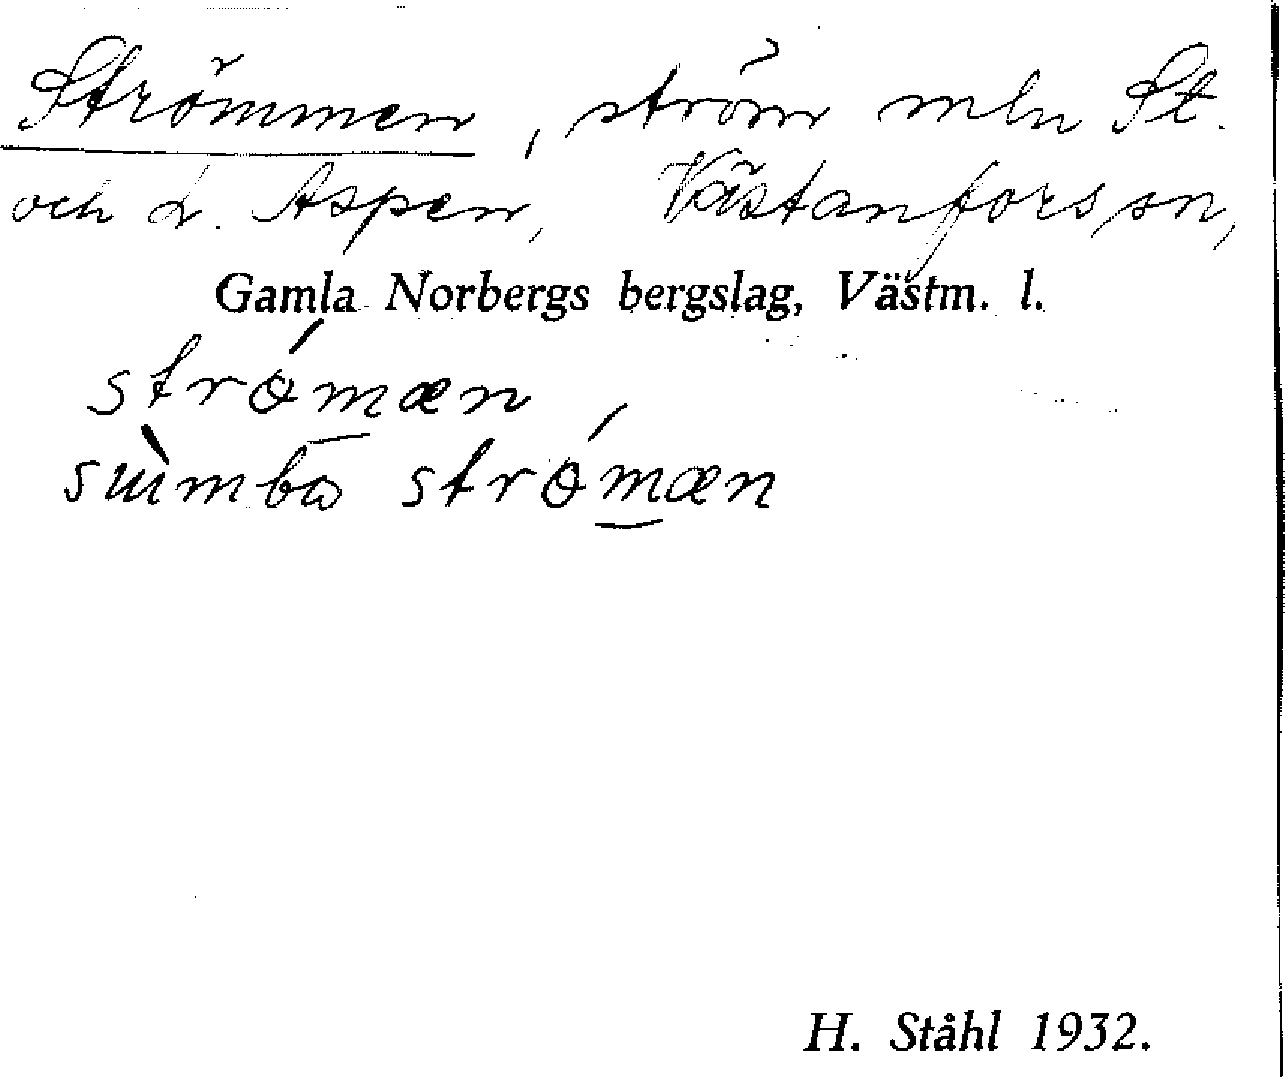 Strömmen, ström mln St.
och L. Aspen, Västanfors sn,
Gamla Norbergs bergslag, Västm. l.
strǿmæn
strǿmæn
H. Ståhl 1932.